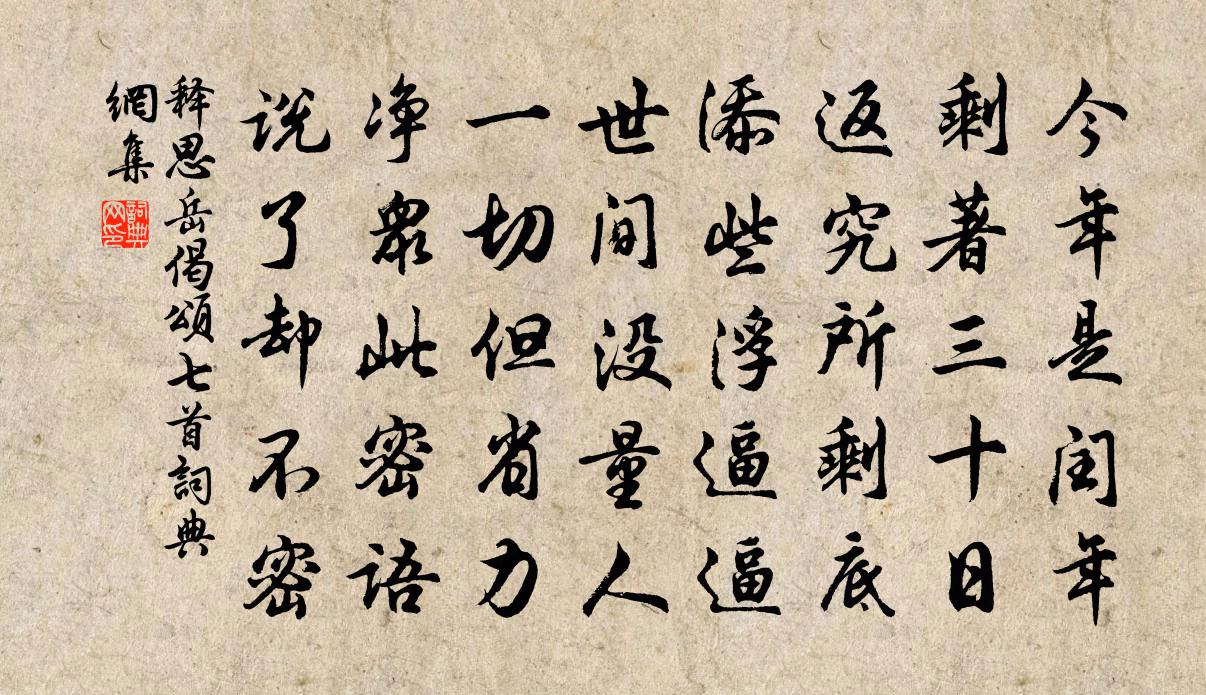 今年是闰年
剩著三十日
返究所剩底
添些浮逼逼
世间没量人
一切但省力
净眾此密语
说了却不密
释思岳偈颂七首詞典
網集
詞典
网印